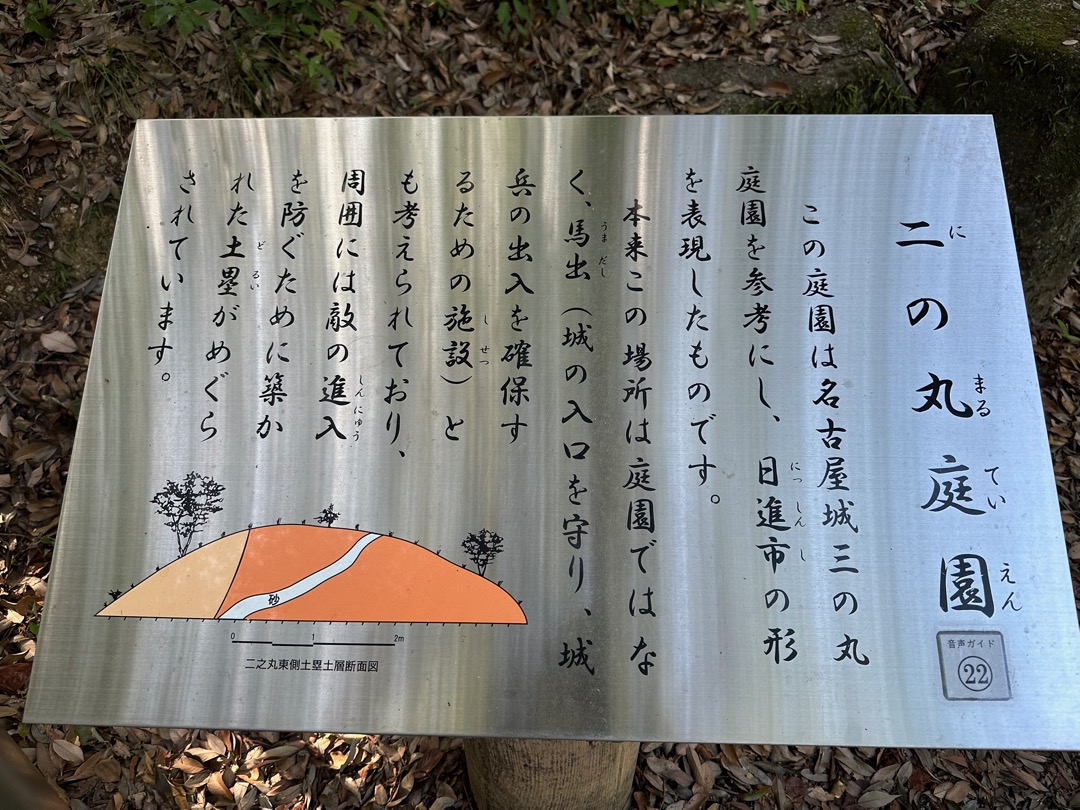 二の丸庭園
に まる てい えん
音声ガイド
22
この庭園は名古屋城三の丸
庭園を参考にし、日進市の形
にっしんし
を表現したものです。
本来この場所は庭園ではな
く、馬出（城の入口を守り、城
うまだし
兵の出入を確保す
るための施設）と
しせつ
も考えられており、
周囲には敵の進入
しんにゅう
を防ぐために築か
れた土塁がめぐら
どるい
されています。
砂
0 1 2m
二之丸東側土塁土層断面図